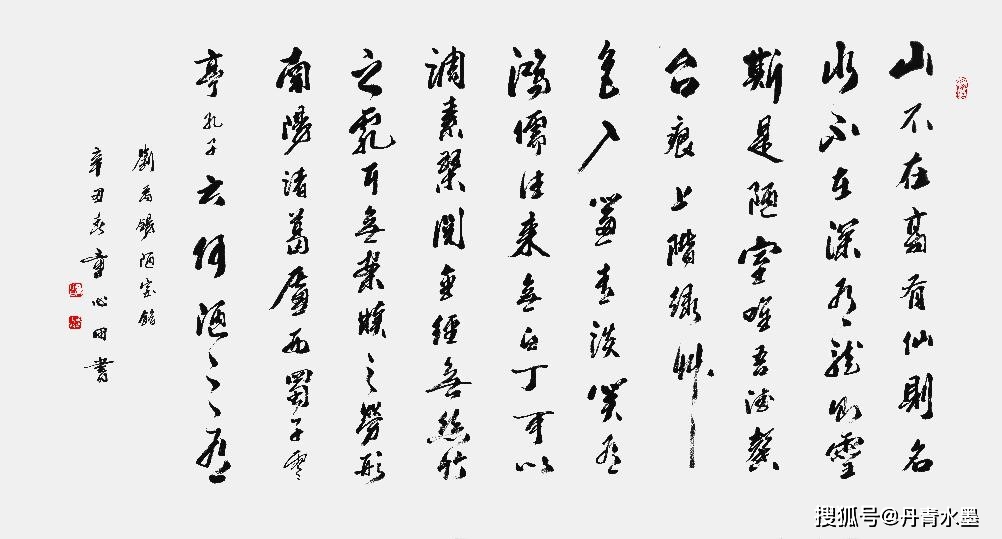 山不在高有仙則名
水不在深有龍則靈
斯是陋室唯吾德馨
台痕上階綠艸
色入簾青談笑有
鴻儒往來無白丁可以
調素琴閱金經無絲竹
之亂耳無案牘之勞形
南陽諸葛廬西蜀子雲
亭孔子云何陋之有
劉禹錫陋室銘
辛丑春心田書
搜狐号@丹青水墨